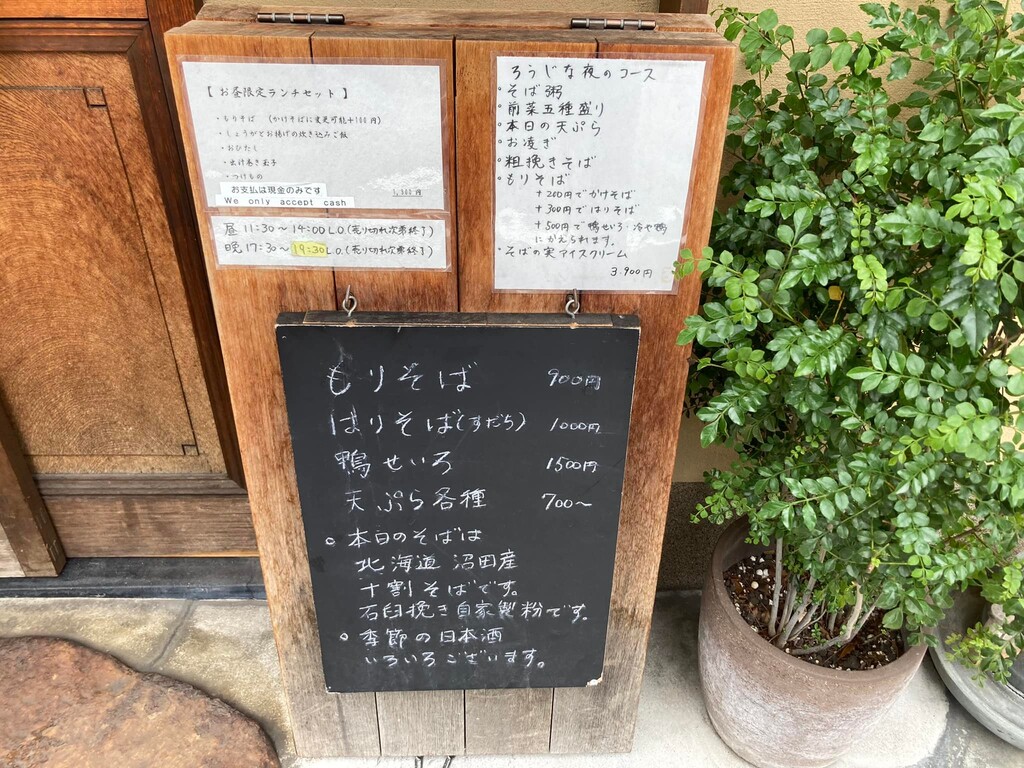 【お昼限定ランチセット】
・もりそば （かけそばに変更可能+100円）
・しょうがとお揚げの炊き込みご飯
・おひたし
・出汁巻き玉子
・つけもの
お支払は現金のみです
We only accept cash
昼 11:30〜14:00 L.O.(売り切れ次第終了)
晩 17:30〜19:30 L.O.(売り切れ次第終了)
ろうじな夜のコース
・そば粥
・前菜五種盛り
・本日の天ぷら
・お凌ぎ
・粗挽きそば
・もりそば
+200円でかけそば
+300円ではりそば
+500円で鴨せいろ・冷や鴨
にかえられます。
・そばの実アイスクリーム
3.900円
もりそば 900円
はりそば(すだち) 1000円
鴨せいろ 1500円
天ぷら各種 700〜
○ 本日のそばは
北海道 沼田産
十割そばです。
石臼挽き自家製粉です。
○ 季節の日本酒
いろいろございます。